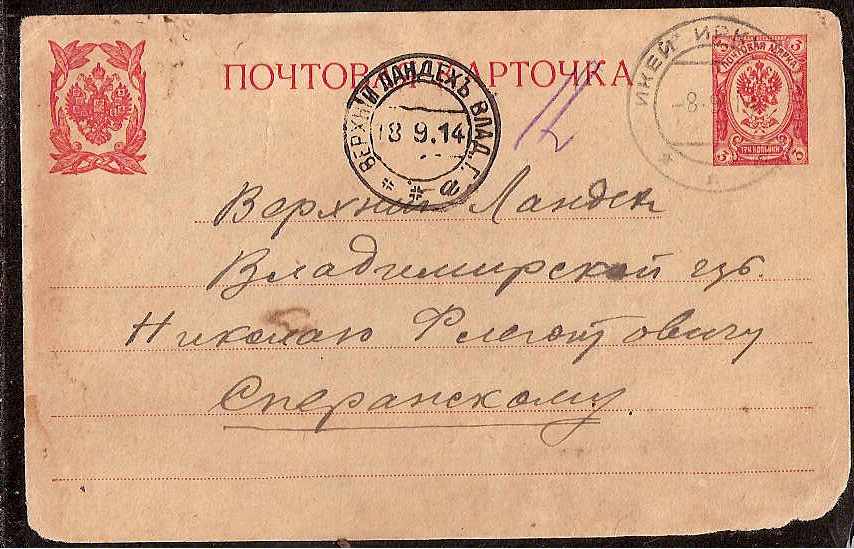 ПОЧТОВАЯ КАРТОЧКА
ВЕРХНІЙ ЛАНДЕХЪ ВЛАД. Г.
8 9.14
а
ИКЕЙ
-8.9
ПОЧТОВАЯ МАРКА
3 3
ТРИ КОПѢЙКИ
Верхний Ландех
Владимирской губ.
Николаю Флегонтовичу
Сперанскому.